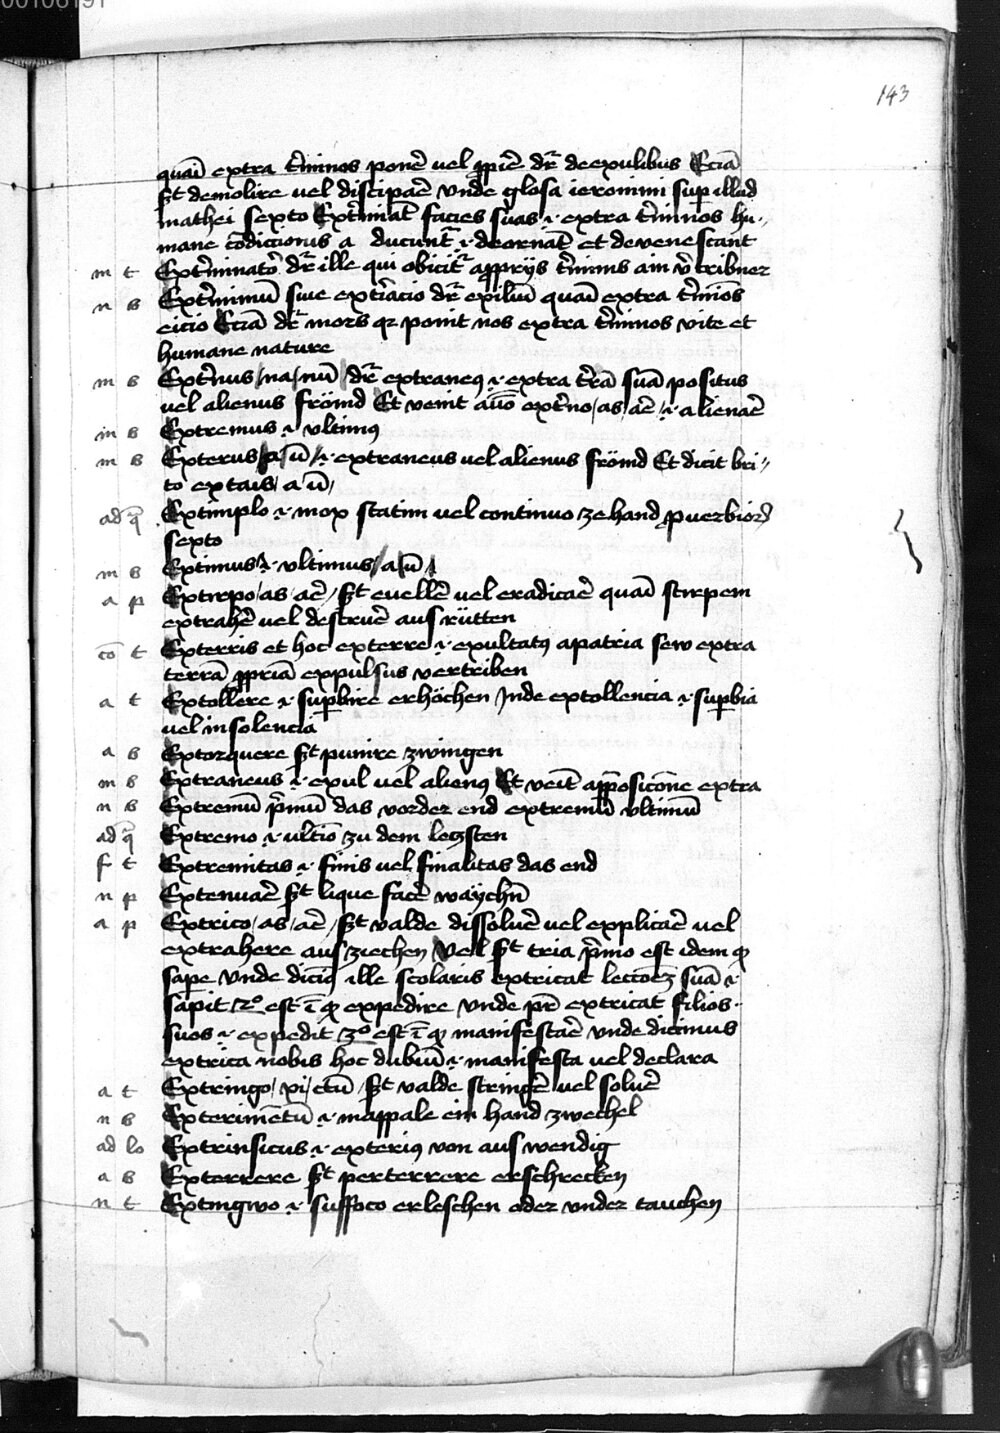 143
quasi extra t̄minos pone᷑ vel ꝓpie᷑ dr̄ de exulibus Eciā
st̄ demolire vel discipae᷑ vnde glosa ieronimi sup illud
mathei sexto Ext̄minat̄ facies suas .i. extra t̄minos hu-
mane cōdicionis a ducunt̄ .i. deornāt et devenescant
m t Ext̄minator dr̄ ille qui obicit᷑ a ꝓprijs t̄minis
n b Ext̄miniū siue ext̄iacio dr̄ exiliū quasi extra t̄mīos
eicio Eciā dr̄ mors qz ponit nos extra t̄minos vite et
humane nature
m b Ext̄nus /na /nū / dr̄ extraneꝰ .i. extra t̄rā suā positus
vel alienus frömd Et venit a ūo ext̄no /as /ae᷑ .i. alienae᷑
m b Extremus .i. vltimꝰ
m b Exterus /a /ū / .i. extraneus vel alienus frömd Et dicit bri-
to extais /a ū /
ad q̄ Extimplo .i. mox statim vel continuo ze hand ꝓuerbioꝝ
sexto
m b Extimus .i. vltimus /a /ū /
a p Extirpo /as /ae᷑ / st̄ euelle᷑ vel eradicae᷑ quasi stirpem
extrahe᷑ vel destrue᷑ aus rütten
cō t Exterris et hoc exterre .i. exultatꝰ a patria sew extra
terrā ꝓpriā expulsus vertriben
a t Extollere .i. supbire erhöchen Inde extollencia .i. supbia
vel insolencia
a b Extorquere st̄ punire zwingen
m b Extraneus .i. exul vel alienꝰ Et venit a p̄posicōne extra
n b Extremū p̄mū das vorder end extremū vltimū
ad q̄ Extremo .i. vltīo zu dem letzsten
f t Extremitas .i. finis vel finalitas das end
n p Extenuae᷑ st̄ lique face᷑ waychn̄
a p Extrico /as /ae᷑ / st̄ valde dissolue᷑ vel explicae᷑ vel
extrahere aus ziechen Vel st̄ tria p̄mo est idem ꝙ
sape vnde dicimꝰ ille scolaris extricat leccōez suā .i.
sapit 2º est ī ꝙ expedire vnde pr̄ extricat filios
suos .i. expedit 3º est ī ꝙ manifestae᷑ vnde dicimus
extrica nobis hoc dubiū .i. manifesta vel declara
a t Extringo /xi /ctū / st̄ valde stringe᷑ vel solue᷑
n b Exterimētū .i. mappale ein hand zwechel
ad lo Extrinsicus .i. exteriꝰ von aus wendig
a b Exterrere st̄ perterrere erschrecken
n t Extingwo .i. suffoco erleschen oder vnder tauchen